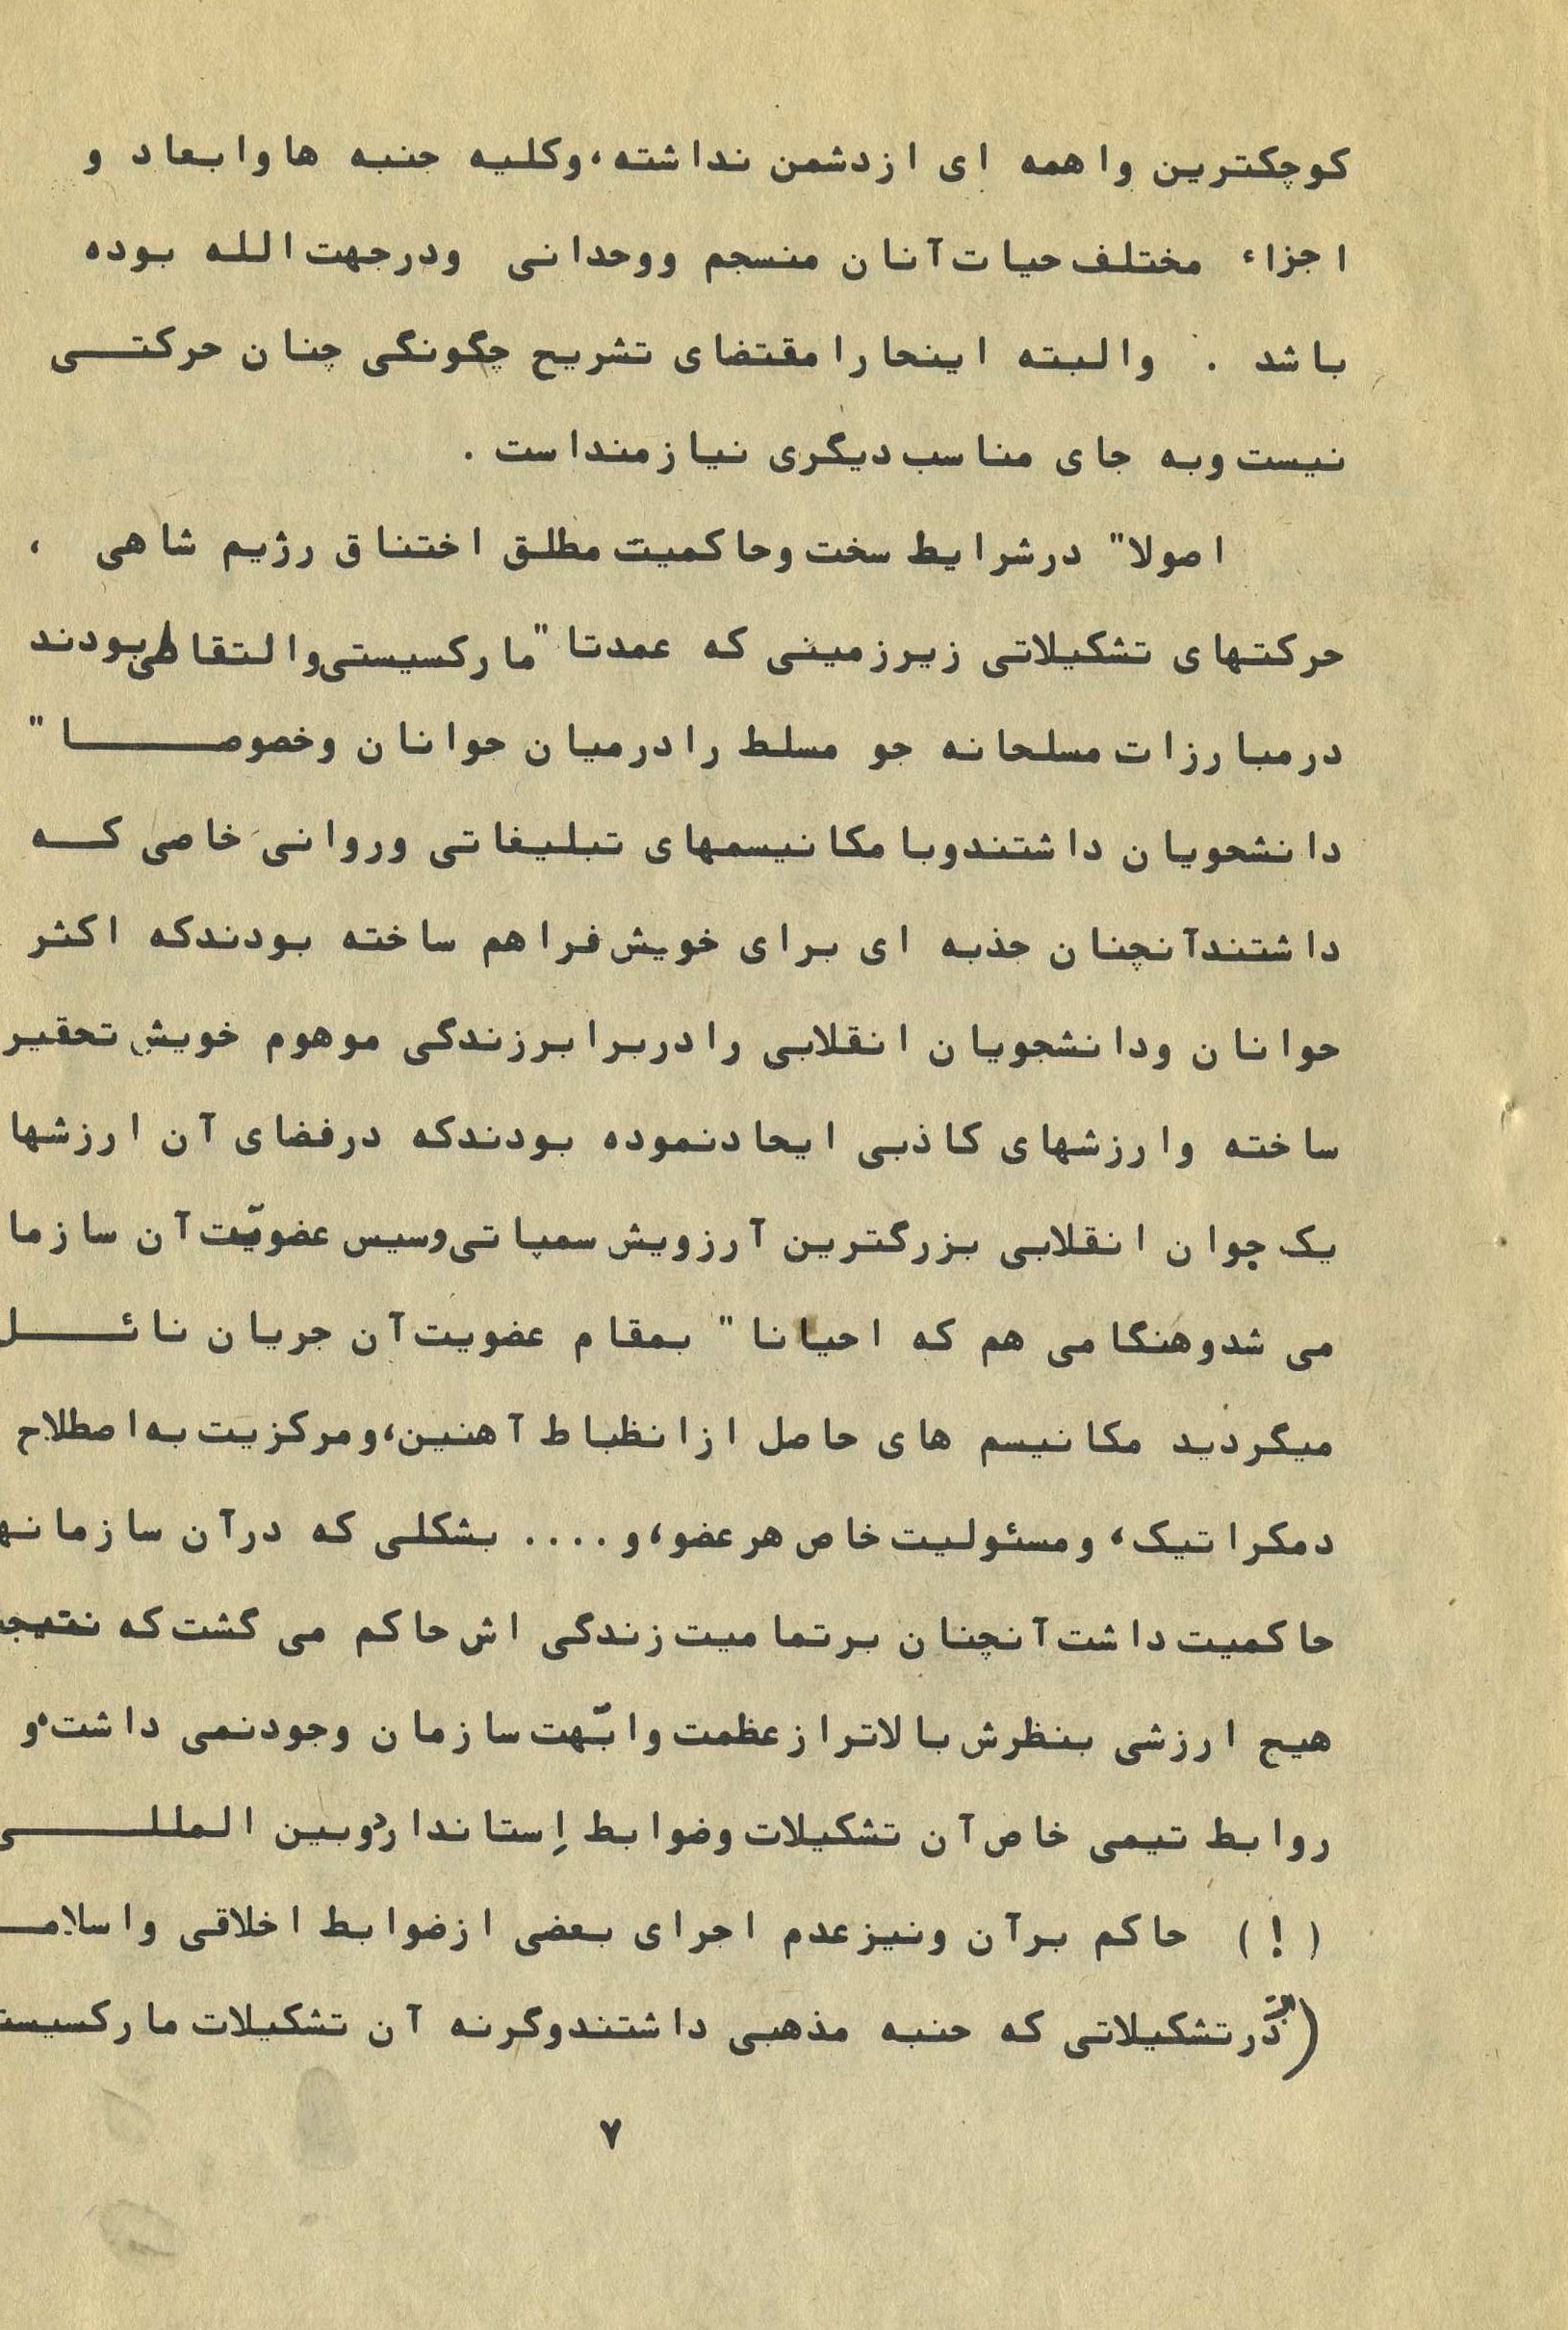 کوچکترین واهمه ای ازدشمن نداشته، وکلیه جنبه ها وابعاد و
اجزاء مختلف حیات آنان منسجم ووحدانی ودرجهت الله بوده
باشد . والبته اینجا را مقتضای تشریح چگونگی چنان حرکتـــی
نیست وبه جای مناسب دیگری نیازمنداست .
اصولا" درشرایط سخت وحاکمیت مطلق اختناق رژیم شاهی ،
حرکتهای تشکیلاتی زیرزمینی که عمدتا" مارکسیستی والتقاطی بودند
درمبارزات مسلحانه جو مسلط رادرمیان جوانان وخصوصـــــا"
دانشجویان داشتندوبا مکانیسمهای تبلیغاتی وروانی خاصی کـــه
داشتندآنچنان جذبه ای برای خویش فراهم ساخته بودندکه اکثر
جوانان ودانشجویان انقلابی رادربرابرزندگی موهوم خویش تحقیر
ساخته وارزشهای کاذبی ایجادنموده بودندکه درفضای آن ارزشها
یک جوان انقلابی بزرگترین آرزویش سمپاتی وسپس عضویّت آن سازما
می شدوهنگامی هم که احیانا" بمقام عضویت آن جریان نائـــــل
میگردید مکانیسم های حاصل ازانظباط آهنین، ومرکزیت به اصطلاح
دمکراتیک، ومسئولیت خاص هرعضو، و.... بشکلی که درآن سازمانه
حاکمیت داشت آنچنان برتمامیت زندگی اش حاکم می گشت که نتیجه
هیچ ارزشی بنظرش بالاتر ازعظمت وابّهت سازمان وجودنمی داشت، و
روابط تیمی خاص آن تشکیلات وضوابط إستاندارد وبین المللـــــی
(!) حاکم برآن ونیزعدم اجرای بعضی ازضوابط اخلاقی واسلامـــ
(البته درتشکیلاتی که جنبه مذهبی داشتندوگرنه آن تشکیلات مارکسیست
۷